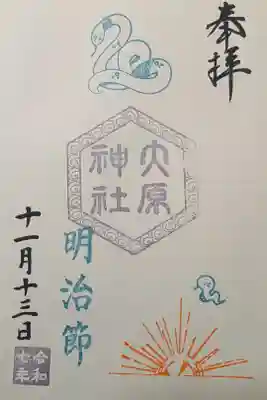 奉拝
大原
神社
明治節
十一月十三日
令和
七年